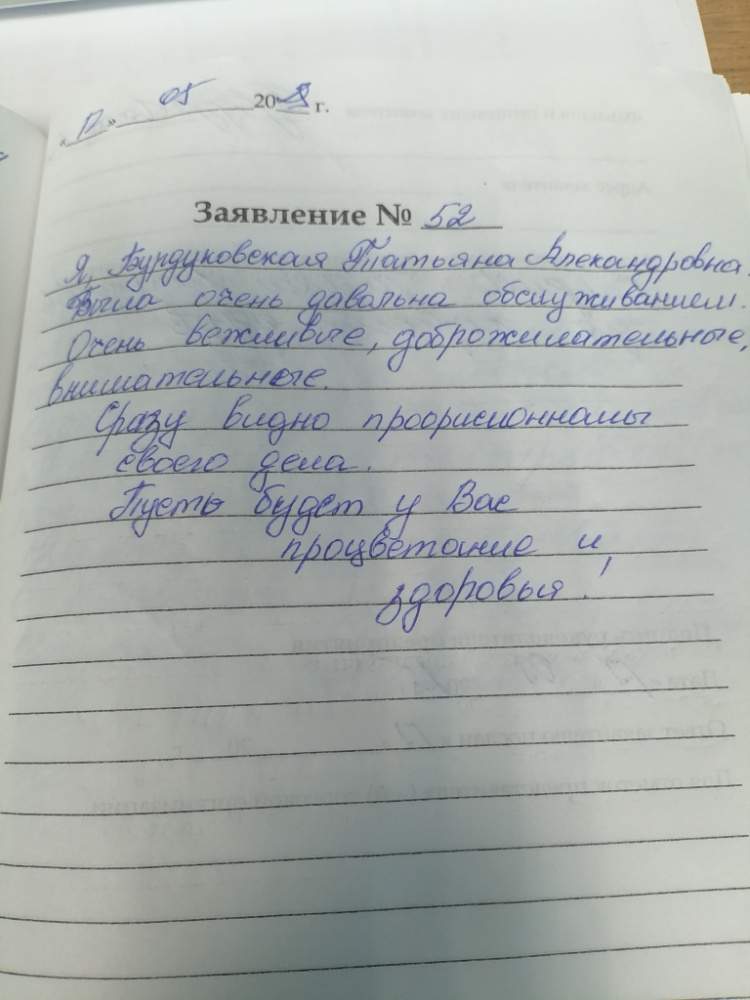 « 12 » 05 20 г.
Заявление № 52
Я, Бурдуковская Татьяна Александровна.
Была очень давольна обслуживанием.
Очень вежливые, доброжилательные,
внимательные.
Сразу видно
своего дела.
Пусть будет у Вас
процветание и
здоровья!